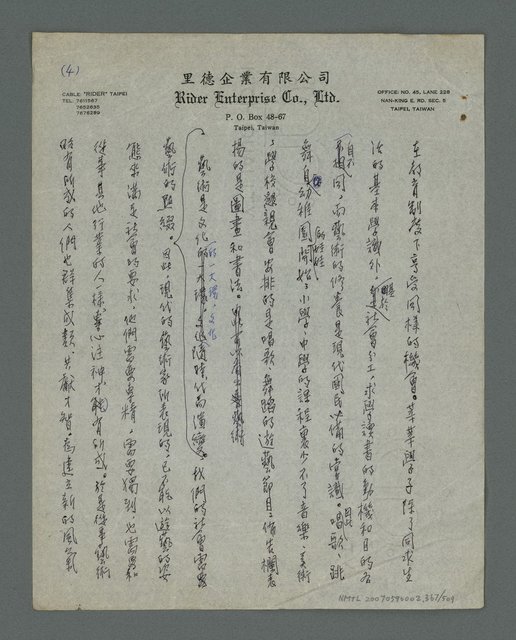 (4)
里德企業有限公司
Rider Enterprise Co., Ltd.
P. O. Box 48-67
Taipei, Taiwan
CABLE: "RIDER" TAIPEI
TEL. 7611567
7652635
7678289
OFFICE: NO. 45, LANE 228
NAN-KING E. RD. SEC. 5
TAIPEI TAIWAN
在教育制度下享受同樣的機會。莘莘學子除了同求生
活的基本學識外，社會分工，求學讀書的動機和目的各
自不相同，而藝術的修養是現代國民必備的常識。唱歌、跳
舞自幼稚園的娃娃開始，小學、中學的課程裏少不了音樂、美術
，學校懇親會安排的是唱歌、舞蹈的遊藝節目，佈告欄表
揚的是圖畫和書法。
藝術是文化的一大環，文化隨時代而演變。我們的社會需要
藝術的點綴。因此，現代的藝術家所表現的，已不能以遊藝的姿
態來滿足社會的要求，他們需要專精，需要獨到，也需要和
從事其他行業的人一樣，專心注神才能有所成。於是從事藝術
略有所成的人們也群集成類，共獻才智，為建立新的風氣
NMTL 20070590002.367/509